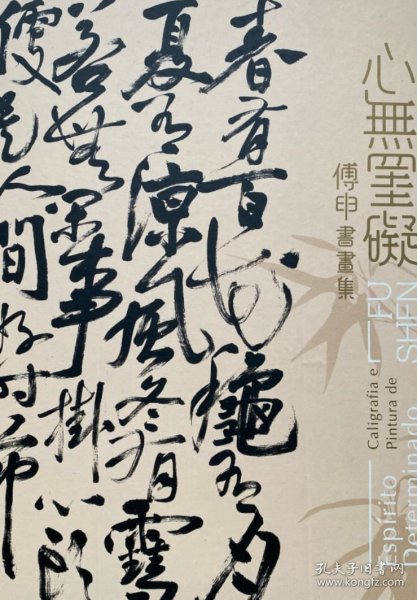 心無罣礙
傅申書畫集
春有百花龝有月
夏有涼風冬有雪
若無閑事掛心頭
便是人間好時節
FU SHEN
Caligrafia e
Pintura de
Espírito
Determinado
孔夫子旧书网
www.kongfz.com